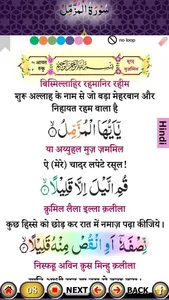 سُورَةُ الْمُزَّمِّل
no loop
بِسْمِ اللّٰهِ الرَّحْمٰنِ الرَّحِيْمِ
बिस्मिल्लाहिर रहमानिर रहीम
शुरू अल्लाह के नाम से जो बड़ा मेहरबान और
निहायत रहम वाला है
يٰٓاَيُّهَا الْمُزَّمِّلُ
या अय्युहल मुज़ ज़ममिल
ऐ (मेरे) चादर लपेटे रसूल!
Hindi
قُمِ الَّيْلَ اِلَّا قَلِيْلًا
क़ुमिल लैला इल्ला क़लीला
कुछ हिस्से को छोड़ कर रात में नमाज़ पढ़ा कीजिये।
نِصْفَهٗٓ اَوِ انْقُصْ مِنْهُ قَلِيْلًا
निस्फहू अविन क़ुस मिन्हु क़लीला
08
NEXT
BACK